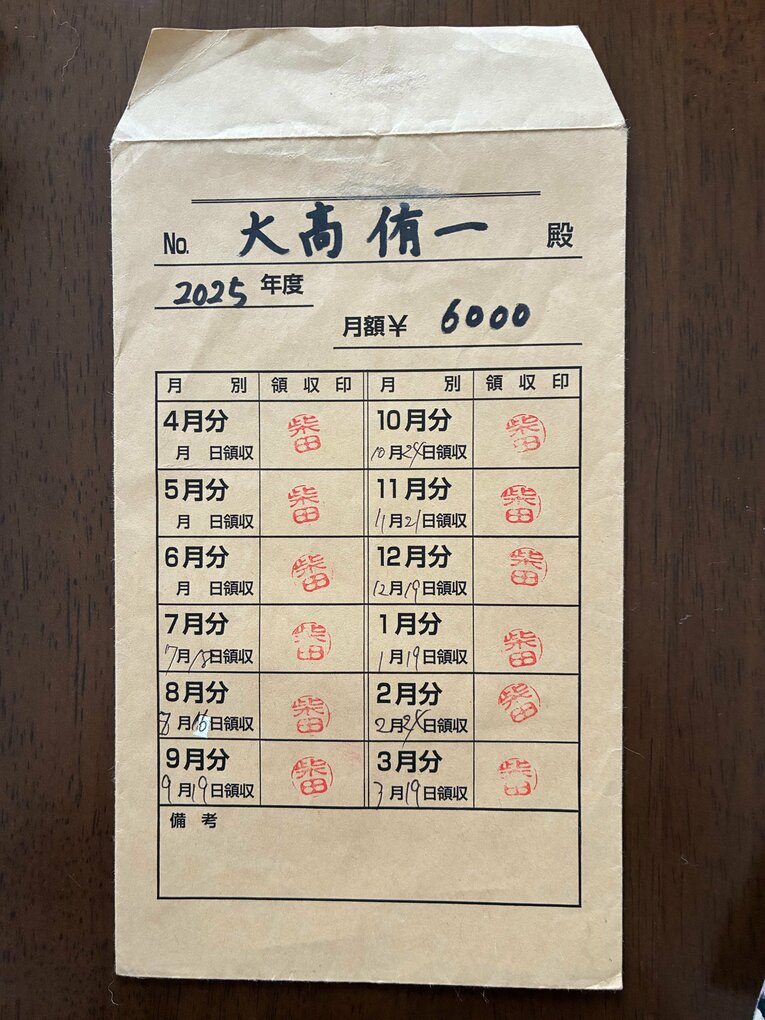 No. 大高侑一 殿
2025 年度
月額¥ 6000
月別 領収印 月別 領収印
4月分 柴田 10月分 柴田
月 日領収 10月24日領収
5月分 柴田 11月分 柴田
月 日領収 11月21日領収
6月分 柴田 12月分 柴田
月 日領収 12月19日領収
7月分 柴田 1月分 柴田
7月18日領収 1月19日領収
8月分 柴田 2月分 柴田
8月16日領収 2月24日領収
9月分 柴田 3月分 柴田
9月19日領収 3月19日領収
備考